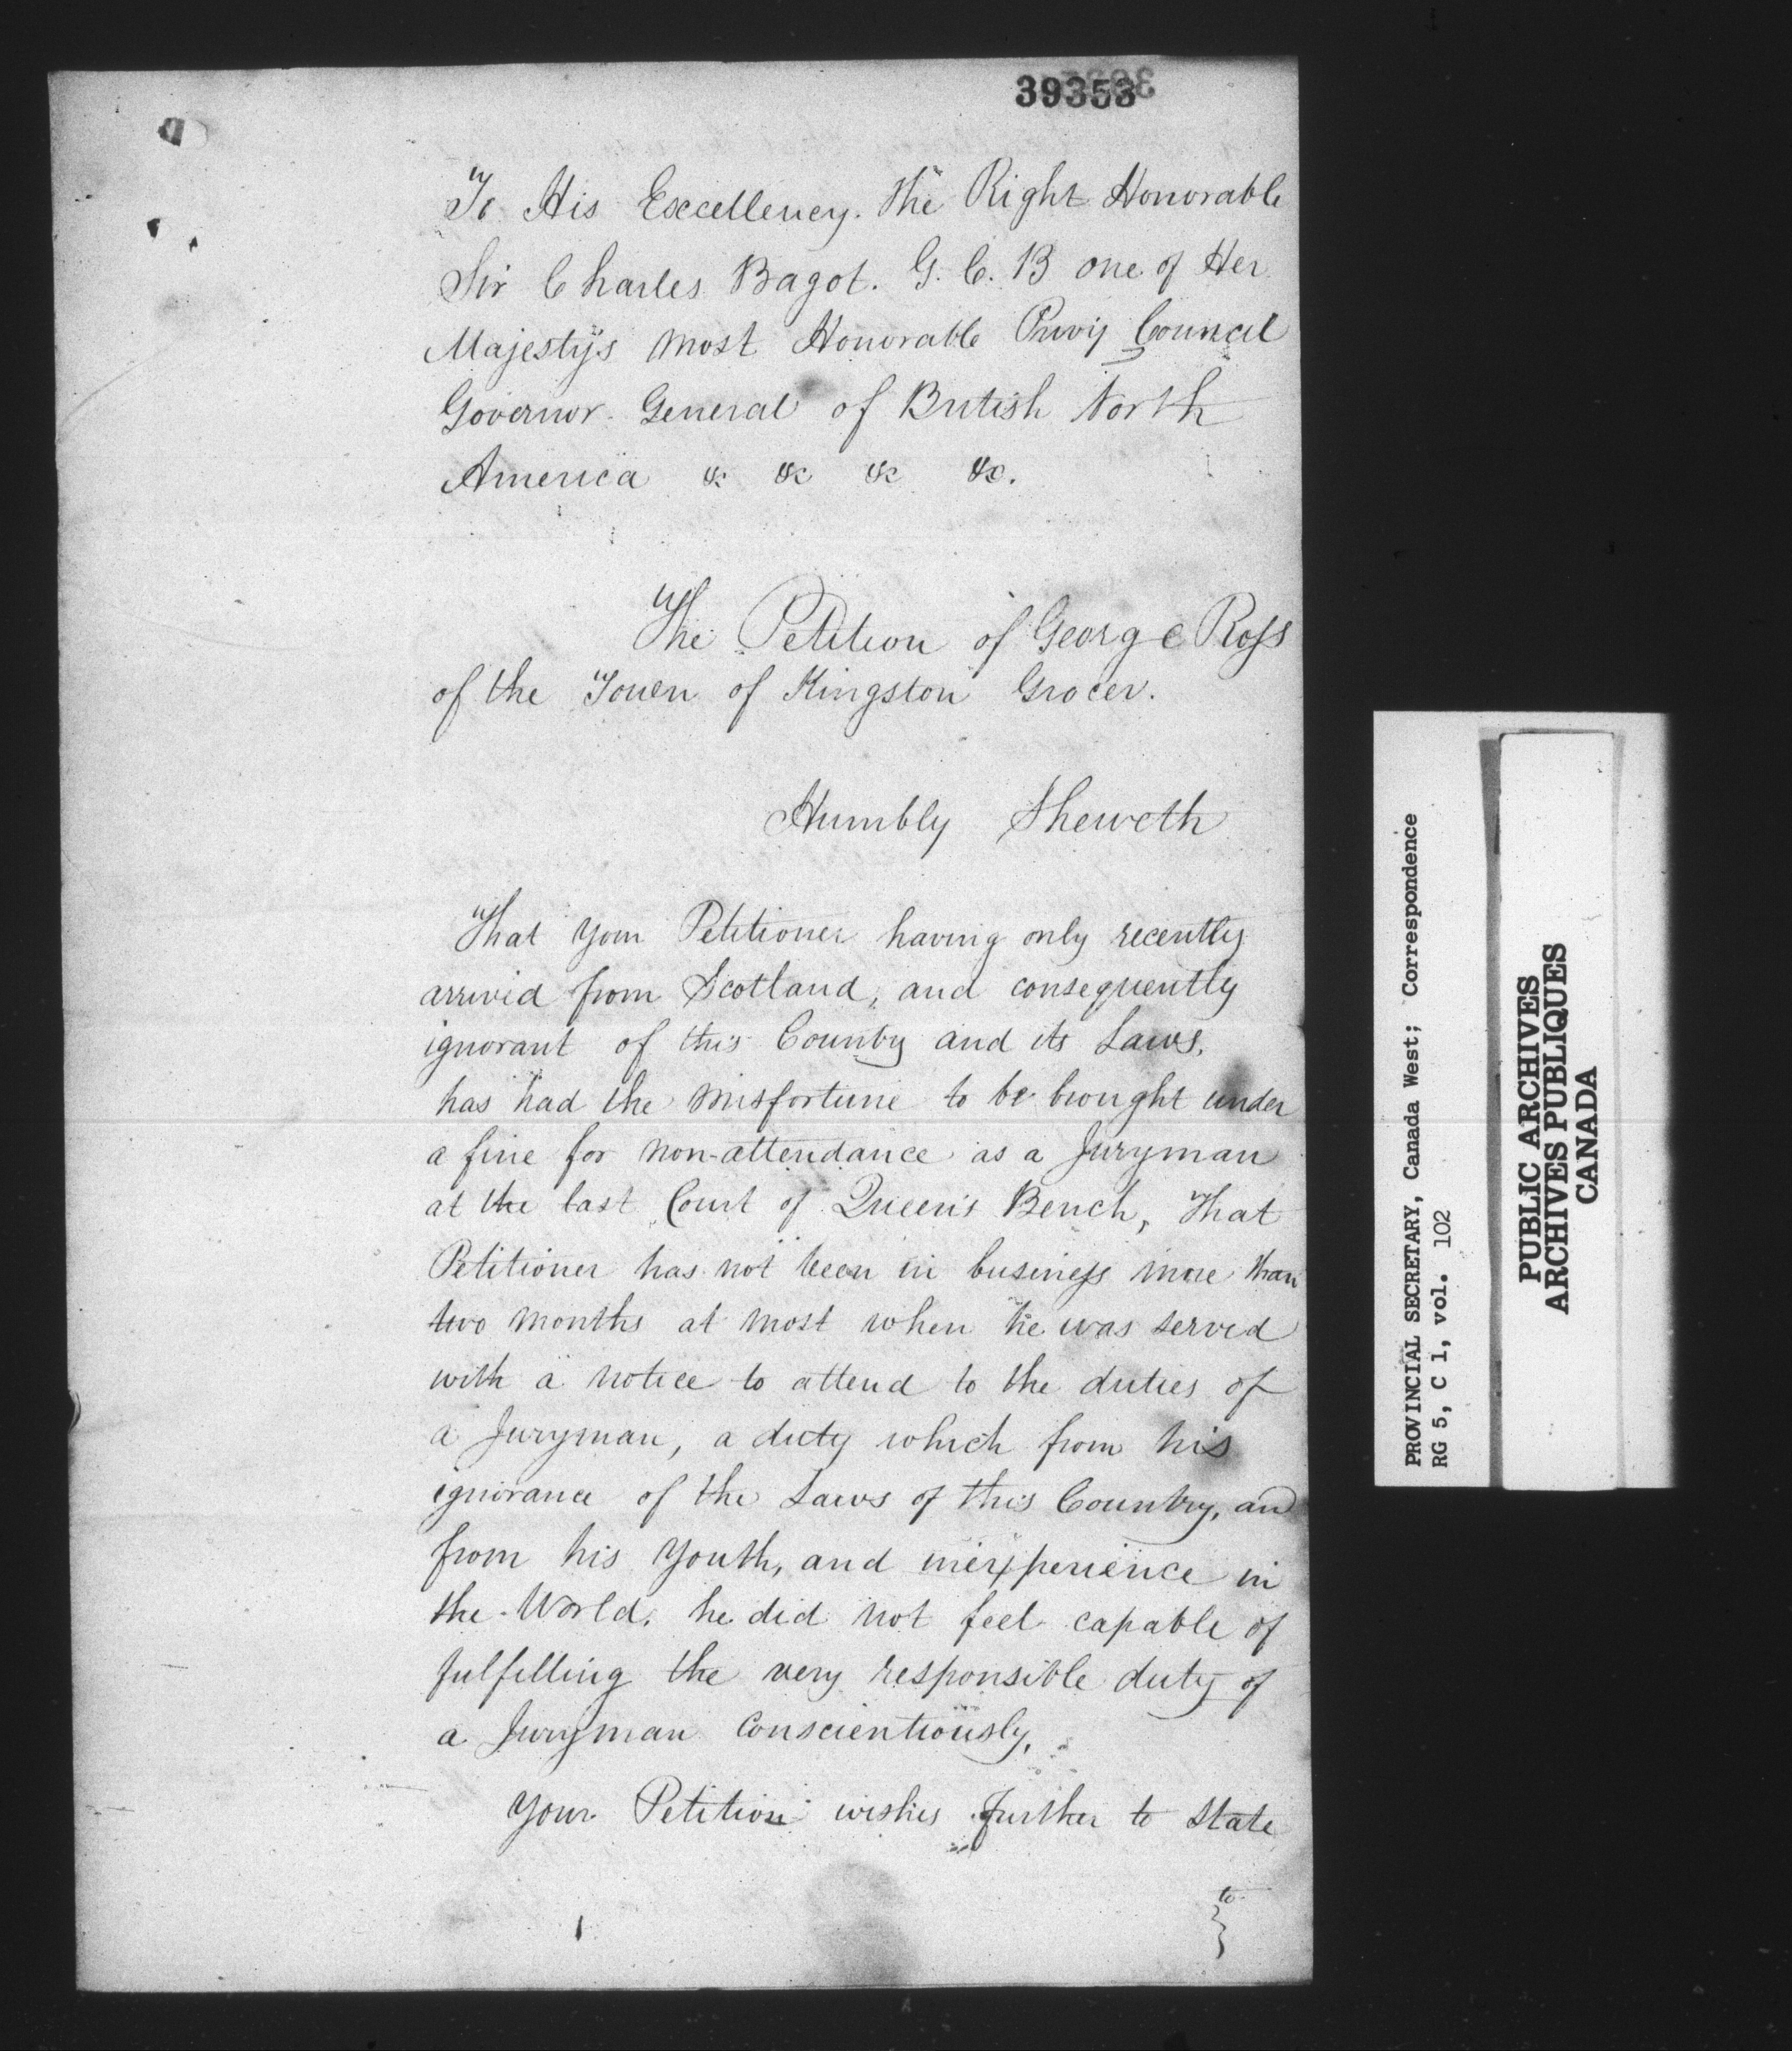 39353
To His Excellency. The Right Honorable
Sir Charles Bagot. G. C. B one of Her
Majesty's most Honorable Privy Council
Governor General of British North
America &c &c &c &c.
The Petition of George Ross
of the Town of Kingston Grocer.
Humbly Sheweth
That your Petitioner having only recently
arrived from Scotland, and consequently
ignorant of this Country and its Laws,
has had the misfortune to be brought under
a fine for non-attendance as a Juryman
at the last Court of Queen's Bench, That
Petitioner has not been in business more than
two months at most when he was served
with a notice to attend to the duties of
a Juryman, a duty which from his
ignorance of the Laws of this Country, and
from his youth, and inexperience in
the World, he did not feel capable of
fulfilling the very responsible duty of
a Juryman Conscientiously,
Your Petition wishes further to state
to
PROVINCIAL SECRETARY, Canada West; Correspondence
RG 5, C 1, vol. 102
PUBLIC ARCHIVES
ARCHIVES PUBLIQUES
CANADA